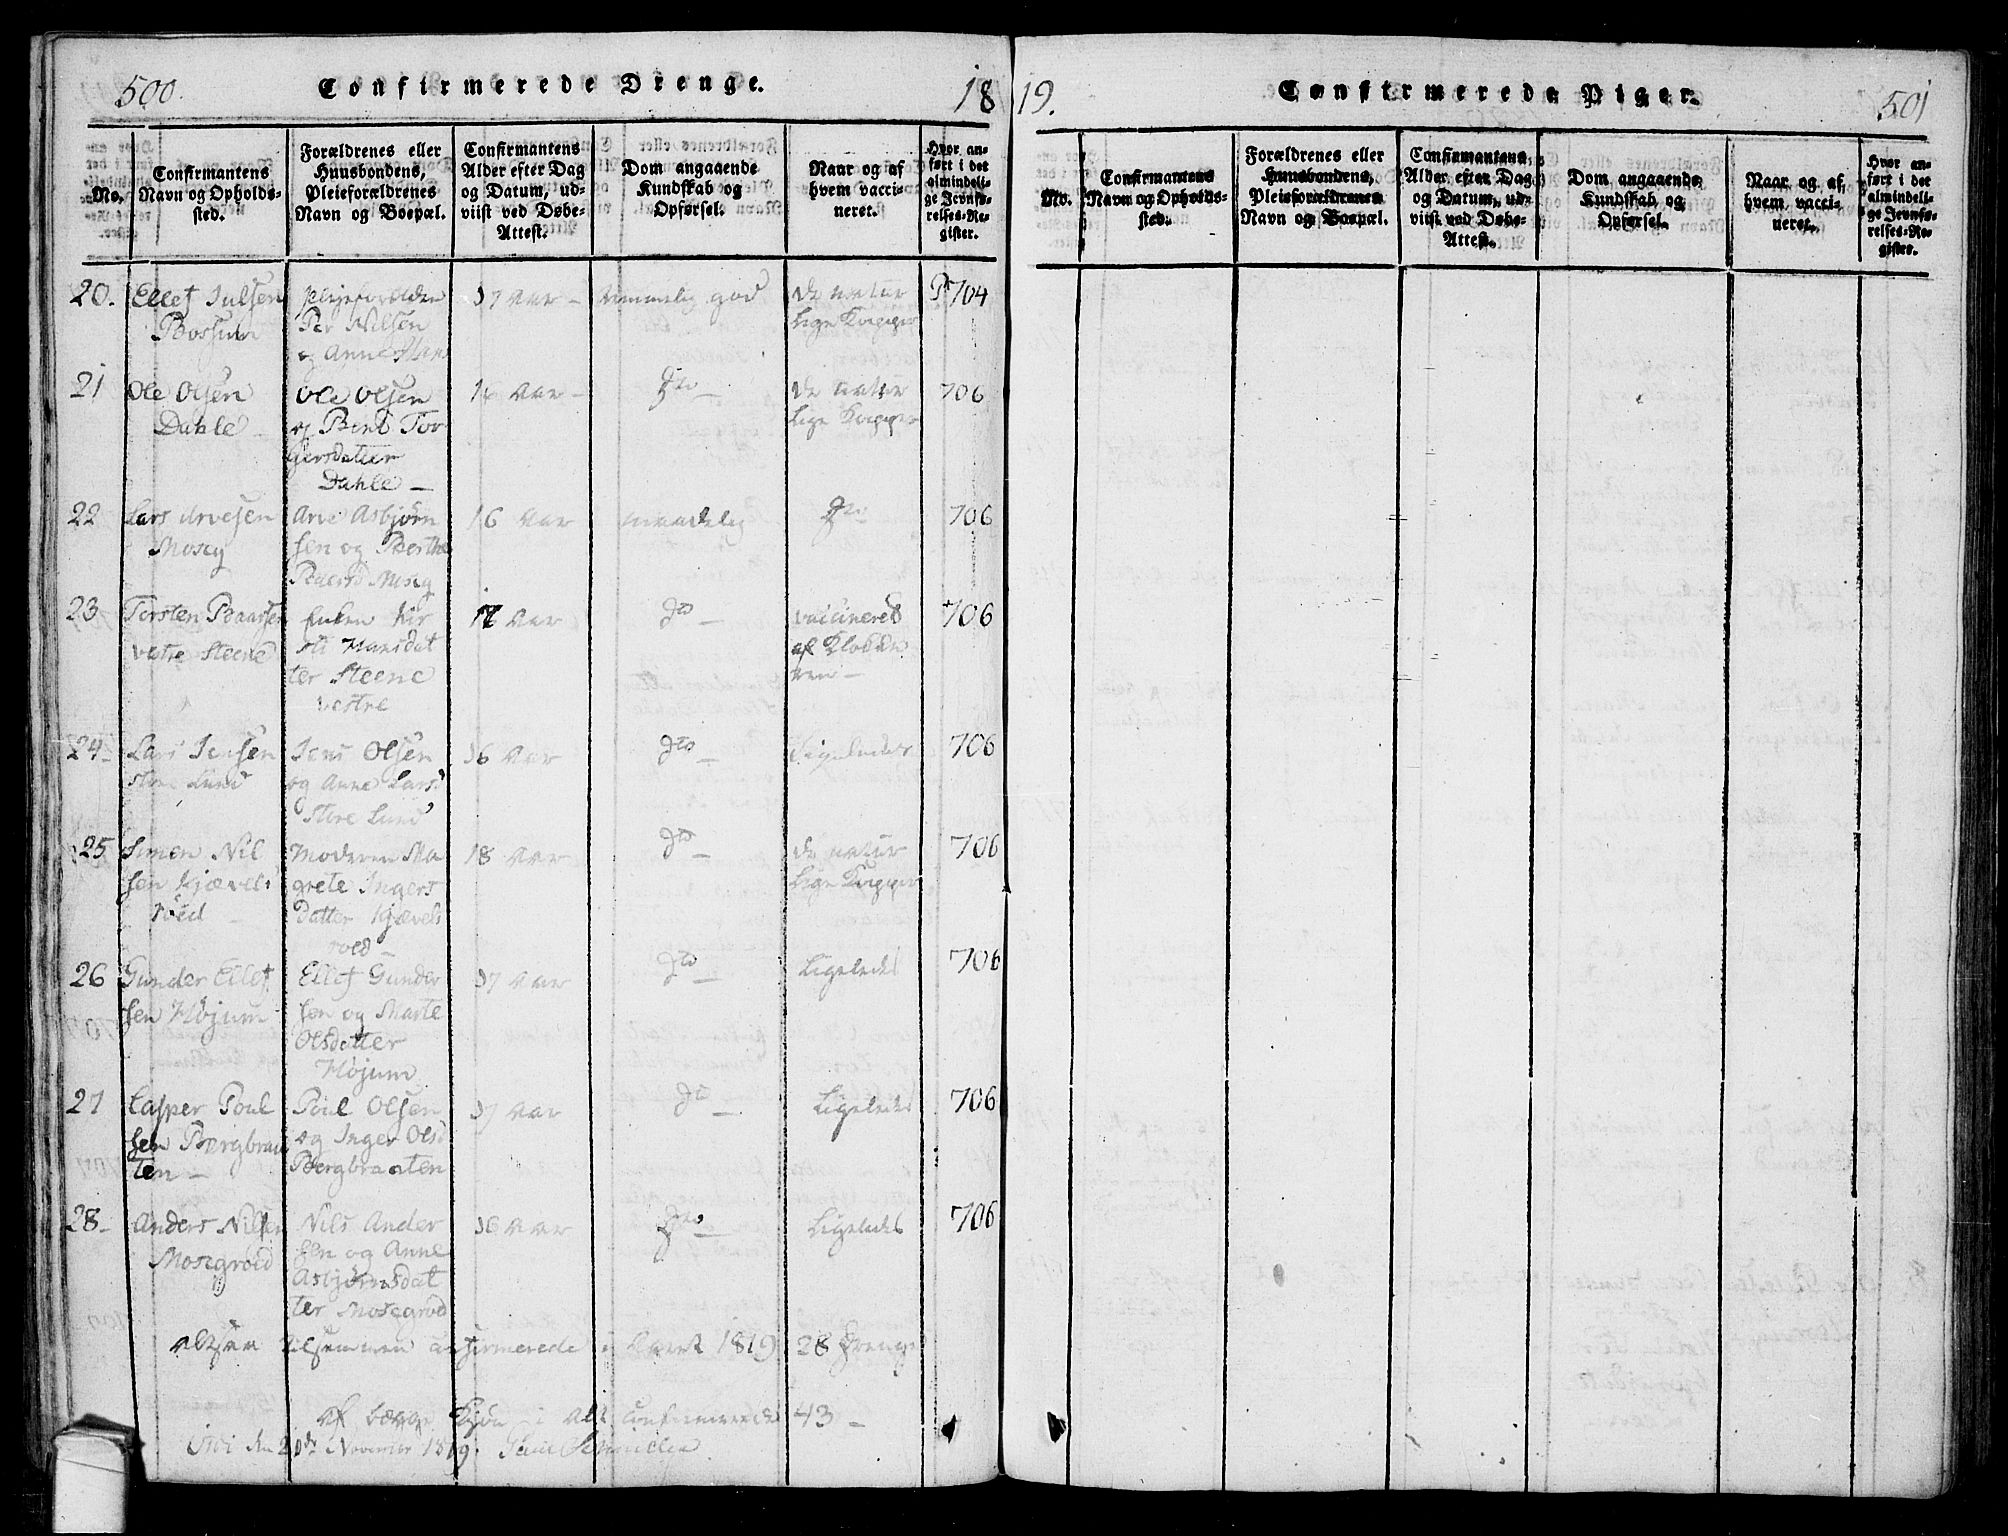 500.
Confirmerede Drenge.
18
No.
Confirmantens
Navn og Opholds-
sted.
Forældrenes eller
Huusbondens,
Pleieforældrenes
Navn og Boepæl.
Confirmantens
Alder efter Dag
og Datum, ud-
viist ved Døbe-
Attest.
Dom angaaende
Kundskab og
Opførsel.
Naar og af
hvem vacci-
neret.
Hvor an-
ført i det
almindeli-
ge Jevnfø-
relses-Re-
gister.
20.
Ellef Julsen
Bossum
plejeforeldre
Per Nilsen
og Anne Hans
17 Aar
temmelig god
de natur
lige Kopper
704
21
Ole Olsen
Dahle
Ole Olsen
og Berit Tor
gersdatter
Dahle
16 Aar
Dto
de natur
lige Kopper
706
22
Lars Arvesen
Moseg
Arve Asbjørn
sen og Berthe
Baarsd Moseg
16 Aar
maadelig
Dto
706
23
Torsten Baarsen
vestre Steene
Enken Kir
sti Hansdat
ter Steene
vestre
17 Aar
Dto
vaccineret
af Klokke
ren
706
24
Lars Jensen
store Lund
Jens Olsen
og Anne Larsd
store Lund
16 Aar
Dto
Ligeledes
706
25
Simen Nil
sen Kjævels
röed
Moderen Ma
grete Ingers
Datter Kjævels
roed
18 Aar
Dto
de natur
lige Kopper
706
26
Gunder Ellef
sen Højum
Ellef Gunder
sen og Marte
Olsdatter
Højum
17 Aar
Dto
Ligeledes
706
27
Casper Poul
sen Bergbraa
ten
Poul Olsen
og Inger Olsd
Bergbraaten
17 Aar
Dto
Ligeledes
706
28
Anders Nilsen
Mosegroed
Nils Ander
sen og Anne
Asbjørnsdat
ter Mosegrod
16 Aar
Dto
Ligeledes
706
altsaa tilsammen confirmerede i Aaret 1819 28 Drenge
af begge Kjøn i alt confirmerede 43
den 21de November 1819.
19.
Confirmerede Piger.
501
No.
Confirmantens
Navn og Opholds-
sted.
Forældrenes eller
Huusbondens,
Pleieforældrenes
Navn og Boepæl.
Confirmantens
Alder efter Dag
og Datum, ud-
viist ved Døbe-
Attest.
Dom angaaende
Kundskab og
Opførsel.
Naar og af
hvem vacci-
neret.
Hvor an-
ført i det
almindeli-
ge Jevnfø-
relses-Re-
gister.